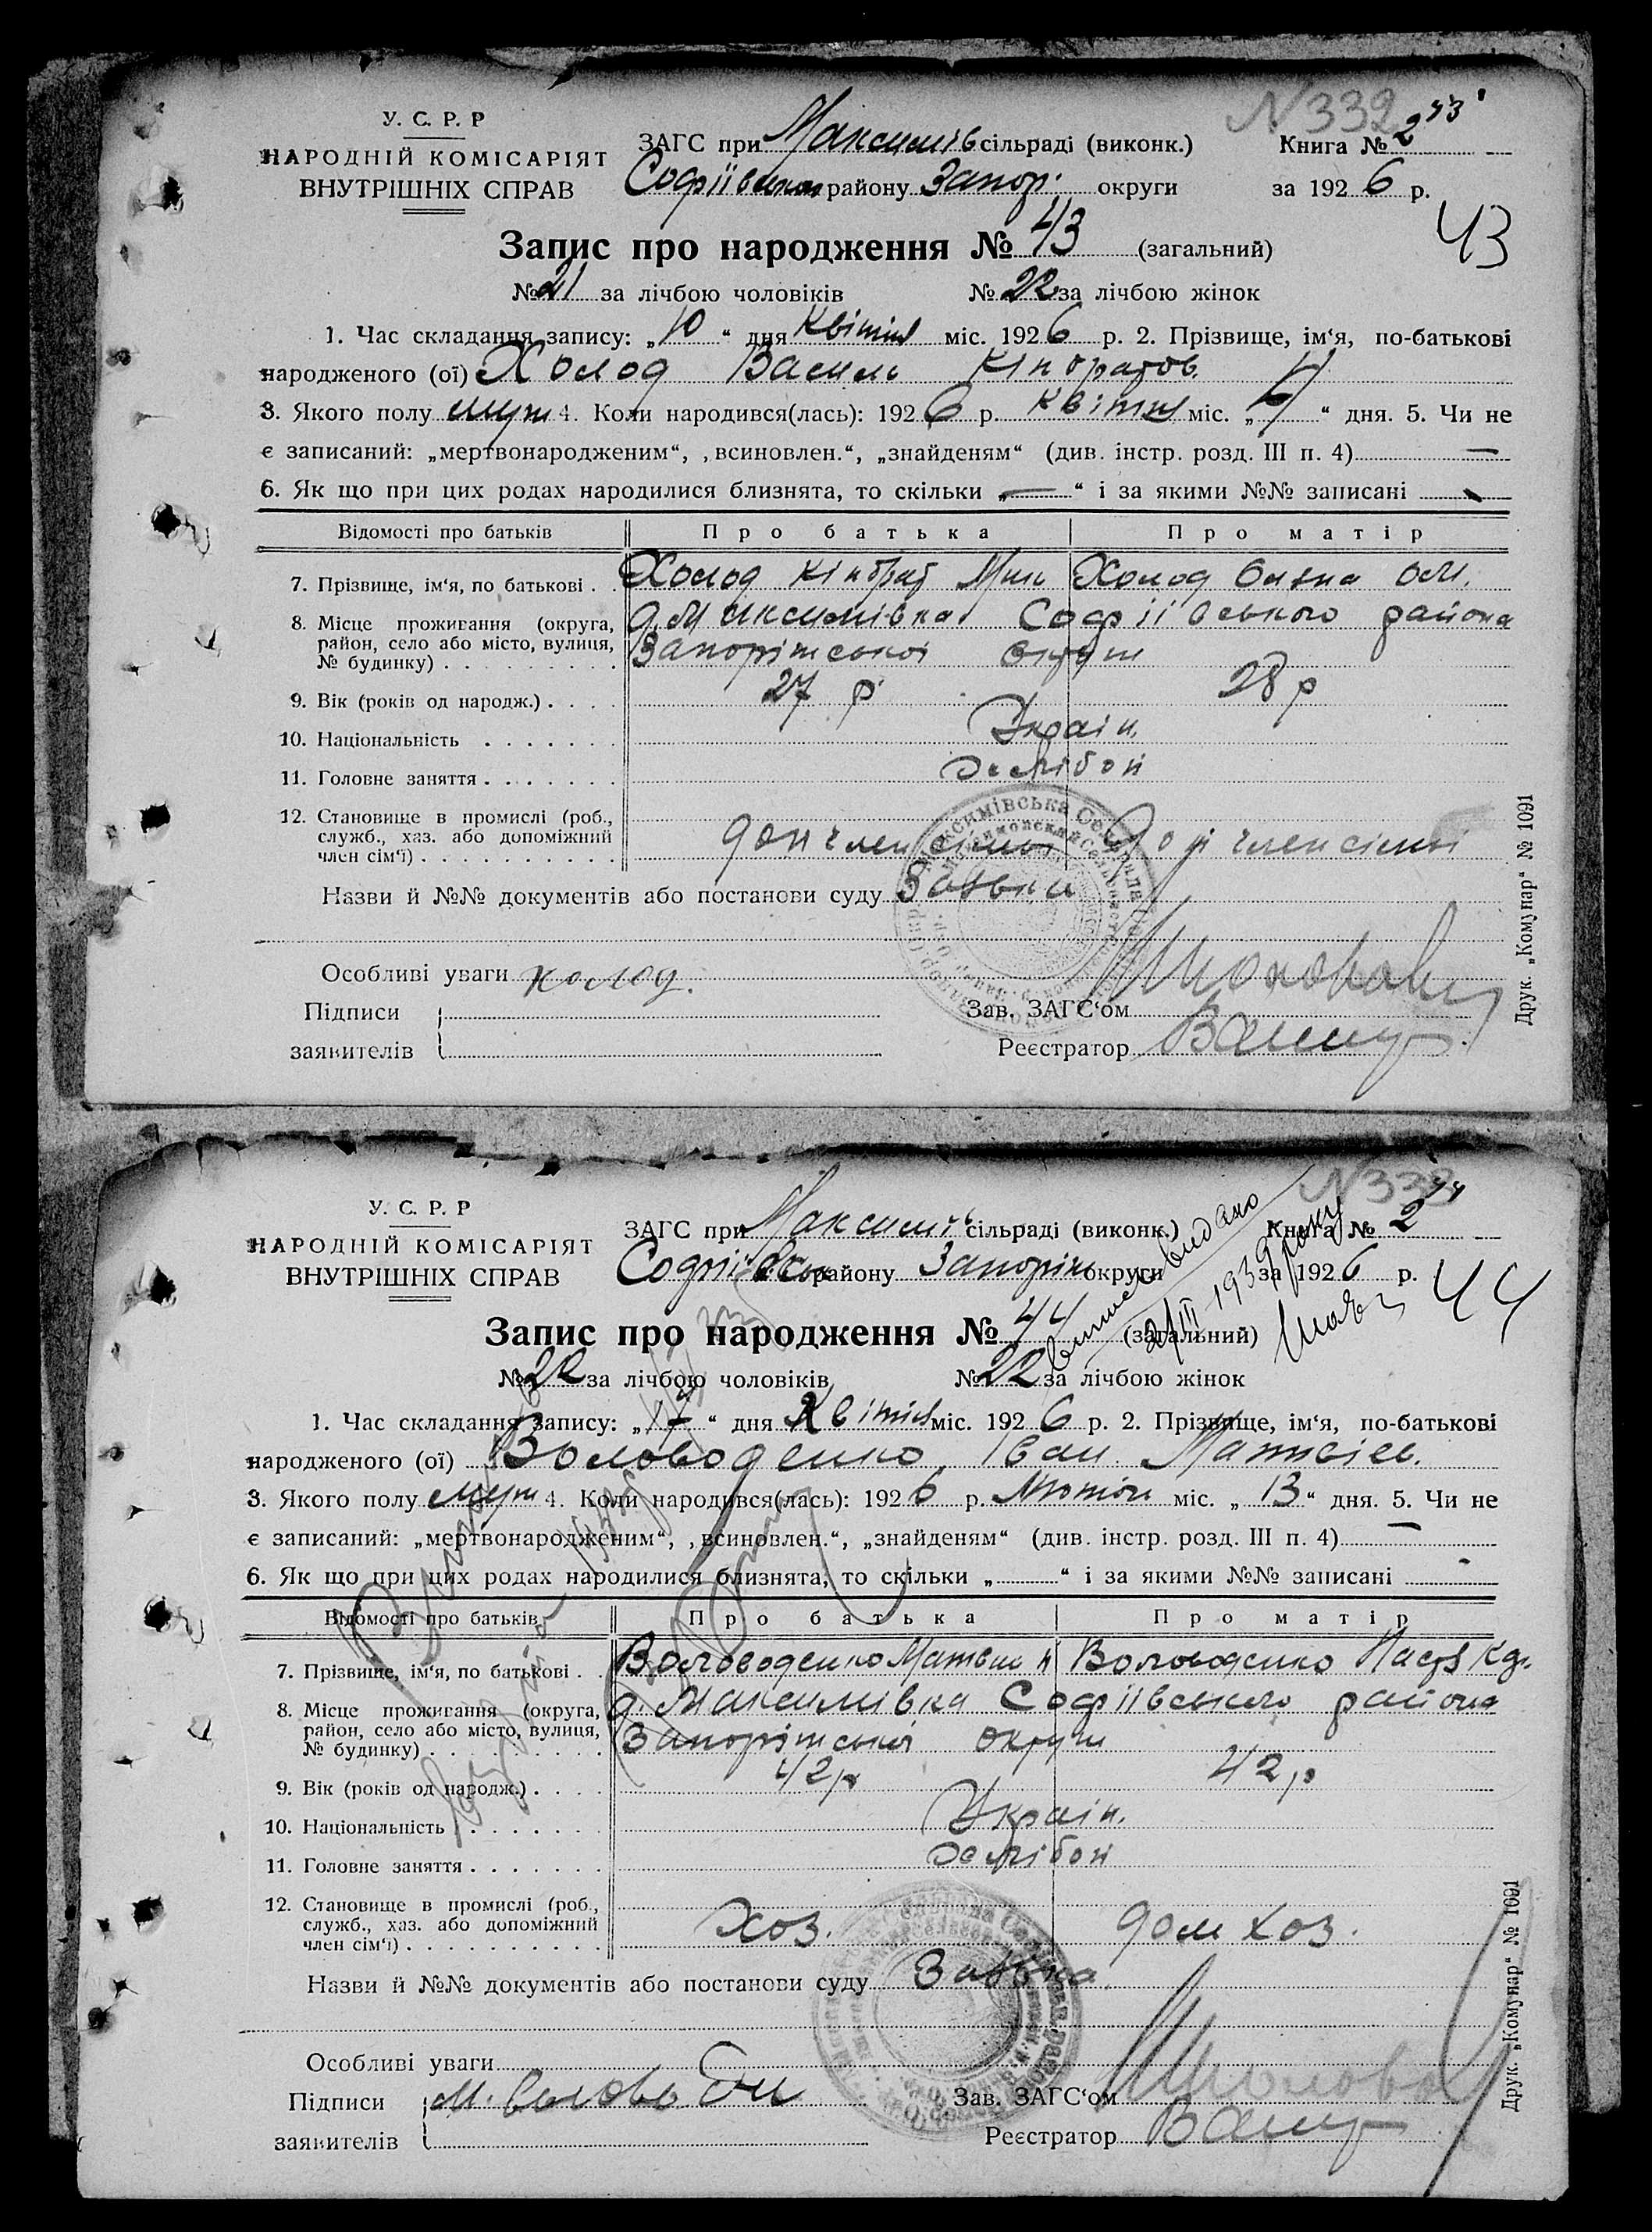 N 332
43
У. С. Р. Р
НАРОДНІЙ КОМІСАРІЯТ
ВНУТРІШНІХ СПРАВ
ЗАГС при Максимів сільраді (виконк.) Книга № 2
Софіївськ району Запор. округи за 1926 р.
43
Запис про народження № 43 (загальний)
№ 21 за лічбою чоловіків № 22 за лічбою жінок
1. Час складання запису: „10“ дня Квітня міс. 1926 р. 2. Прізвище, ім'я, по-батькові
народженого (ої) Холод Василь Кіндратов.
3. Якого полу муж 4. Коли народився(лась): 1926 р. Квітня міс. „4“ дня. 5. Чи не
є записаний: „мертвонародженим“, „всиновлен.“, „знайденям“ (див. інстр. розд. III п. 4) —
6. Як що при цих родах народилися близнята, то скільки „—“ і за якими №№ записані
Відомості про батьків Про батька Про матір
7. Прізвище, ім'я, по батькові . . Холод Кіндрат Холод
8. Місце проживання (округа, район, село або місто, вулиця, № будинку) . . . . . . . . . д. Максимівка Софіївського района
Запоріжської округи
9. Вік (років од народж.) . . . . 27 р 28 р
10. Національність . . . . . . . Україн.
11. Головне заняття . . . . . . . Хлібор
12. Становище в промислі (роб., служб., хаз. або допоміжний член сім'ї) . . . . . . . . . . доп член сімьі доп член сімьі
Назви й №№ документів або постанови суду Заявка
Особливі уваги холод.
Підписи
заявителів
Зав. ЗАГС'ом
Реєстратор
Друк. „Комунар“ № 1091
N 332
44
У. С. Р. Р
НАРОДНІЙ КОМІСАРІЯТ
ВНУТРІШНІХ СПРАВ
ЗАГС при Максимів сільраді (виконк.) Книга № 2
Софіївськ району Запоріж округи за 1926 р.
видано
21/III 1939 року
44
Запис про народження № 44 (загальний)
№ 22 за лічбою чоловіків № 22 за лічбою жінок
1. Час складання запису: „17“ дня Квітня міс. 1926 р. 2. Прізвище, ім'я, по-батькові
народженого (ої) Воловоденко Іван Матвіев.
3. Якого полу муж 4. Коли народився(лась): 1926 р. Лютого міс. „13“ дня. 5. Чи не
є записаний: „мертвонародженим“, „всиновлен.“, „знайденям“ (див. інстр. розд. III п. 4) —
6. Як що при цих родах народилися близнята, то скільки „ “ і за якими №№ записані
Відомості про батьків Про батька Про матір
7. Прізвище, ім'я, по батькові . . Воловоденко Матвій Воловоденко
8. Місце проживання (округа, район, село або місто, вулиця, № будинку) . . . . . . . . . д. Максимівка Софіївського района
Запоріжської округи
9. Вік (років од народж.) . . . . 42 р 42 р
10. Національність . . . . . . . Україн.
11. Головне заняття . . . . . . . Хлібор
12. Становище в промислі (роб., служб., хаз. або допоміжний член сім'ї) . . . . . . . . . . хоз. дом хоз.
Назви й №№ документів або постанови суду Заявка
Особливі уваги
Підписи
заявителів
Зав. ЗАГС'ом
Реєстратор
Друк. „Комунар“ № 1091